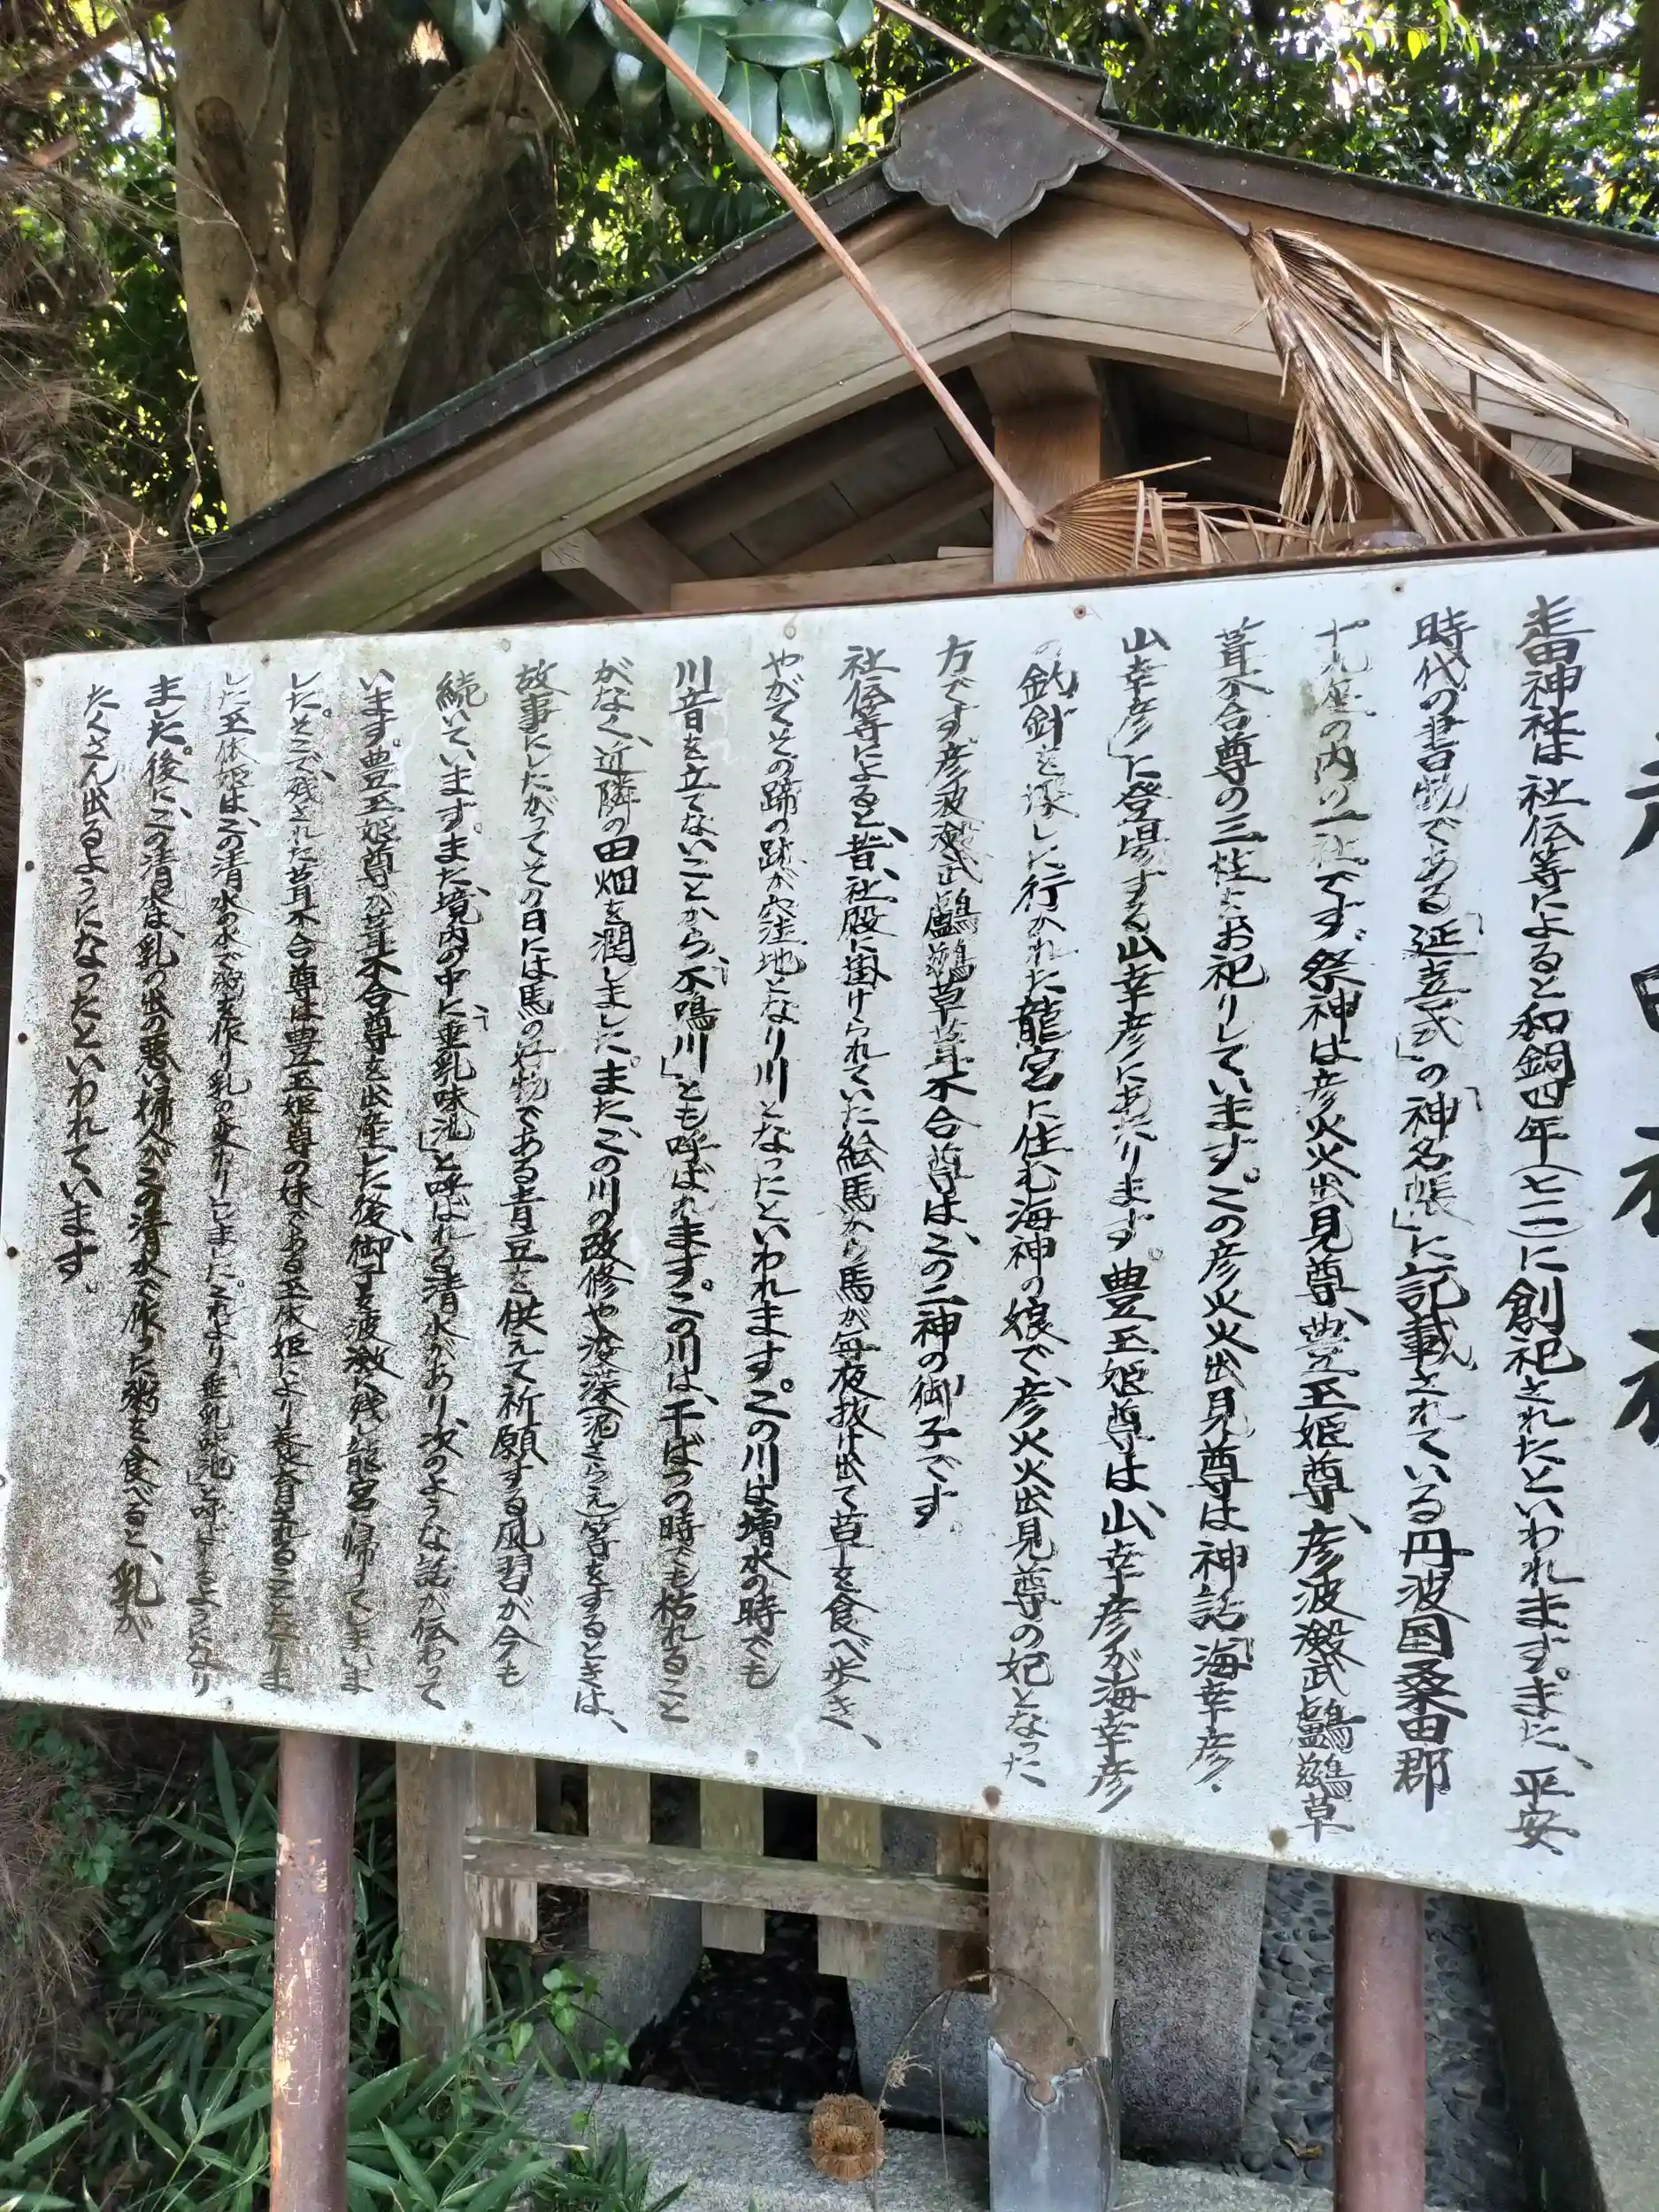 走田神社
走田神社は社伝等によると和銅四年(七一一)に創祀されたといわれます。また、平安
時代の書物である「延喜式」の「神名帳」に記載されている丹波国桑田郡
十九座の内の一社です。祭神は彦火火出見尊、豊玉姫尊、彦波瀲武鸕鶿草
葺不合尊の三柱をお祀りしています。この彦火火出見尊は神話「海幸彦・
山幸彦」に登場する山幸彦にあたります。豊玉姫尊は、山幸彦が海幸彦
の釣針を探しに行かれた龍宮に住む海神の娘で、彦火火出見尊の妃となった
方です。彦波瀲武鸕鶿草葺不合尊は、この二神の御子です。
社伝等によると、昔、社殿に掛けられていた絵馬から馬が毎夜抜け出て草を食べ歩き、
やがてその蹄の跡が窪地となり川となったといわれます。この川は増水の時でも
川音を立てないことから、「不鳴川」とも呼ばれます。この川は、干ばつの時でも枯れること
がなく、近隣の田畑を潤しました。また、この川の改修や浚渫(泥さらえ)等をするときは、
故事にしたがってその日には馬の好物である青豆を供えて祈願する風習が今も
続いています。また、境内の中に「垂乳味池」と呼ばれる清水があり、次のような話が伝わって
います。豊玉姫尊が葺不合尊を出産した後、御子を波激に残し龍宮に帰ってしまいま
した。そこで、残された葺不合尊は豊玉姫尊の妹である玉依姫により養育されることになりま
した。玉依姫は、この清水の水で粥を作り乳の変わりにしました。これより「垂乳味池」と呼ばれるようになり
ました。後に、この清水は、乳の出の悪い婦人がこの清水で作った粥を食べると、乳が
たくさん出るようになったといわれています。